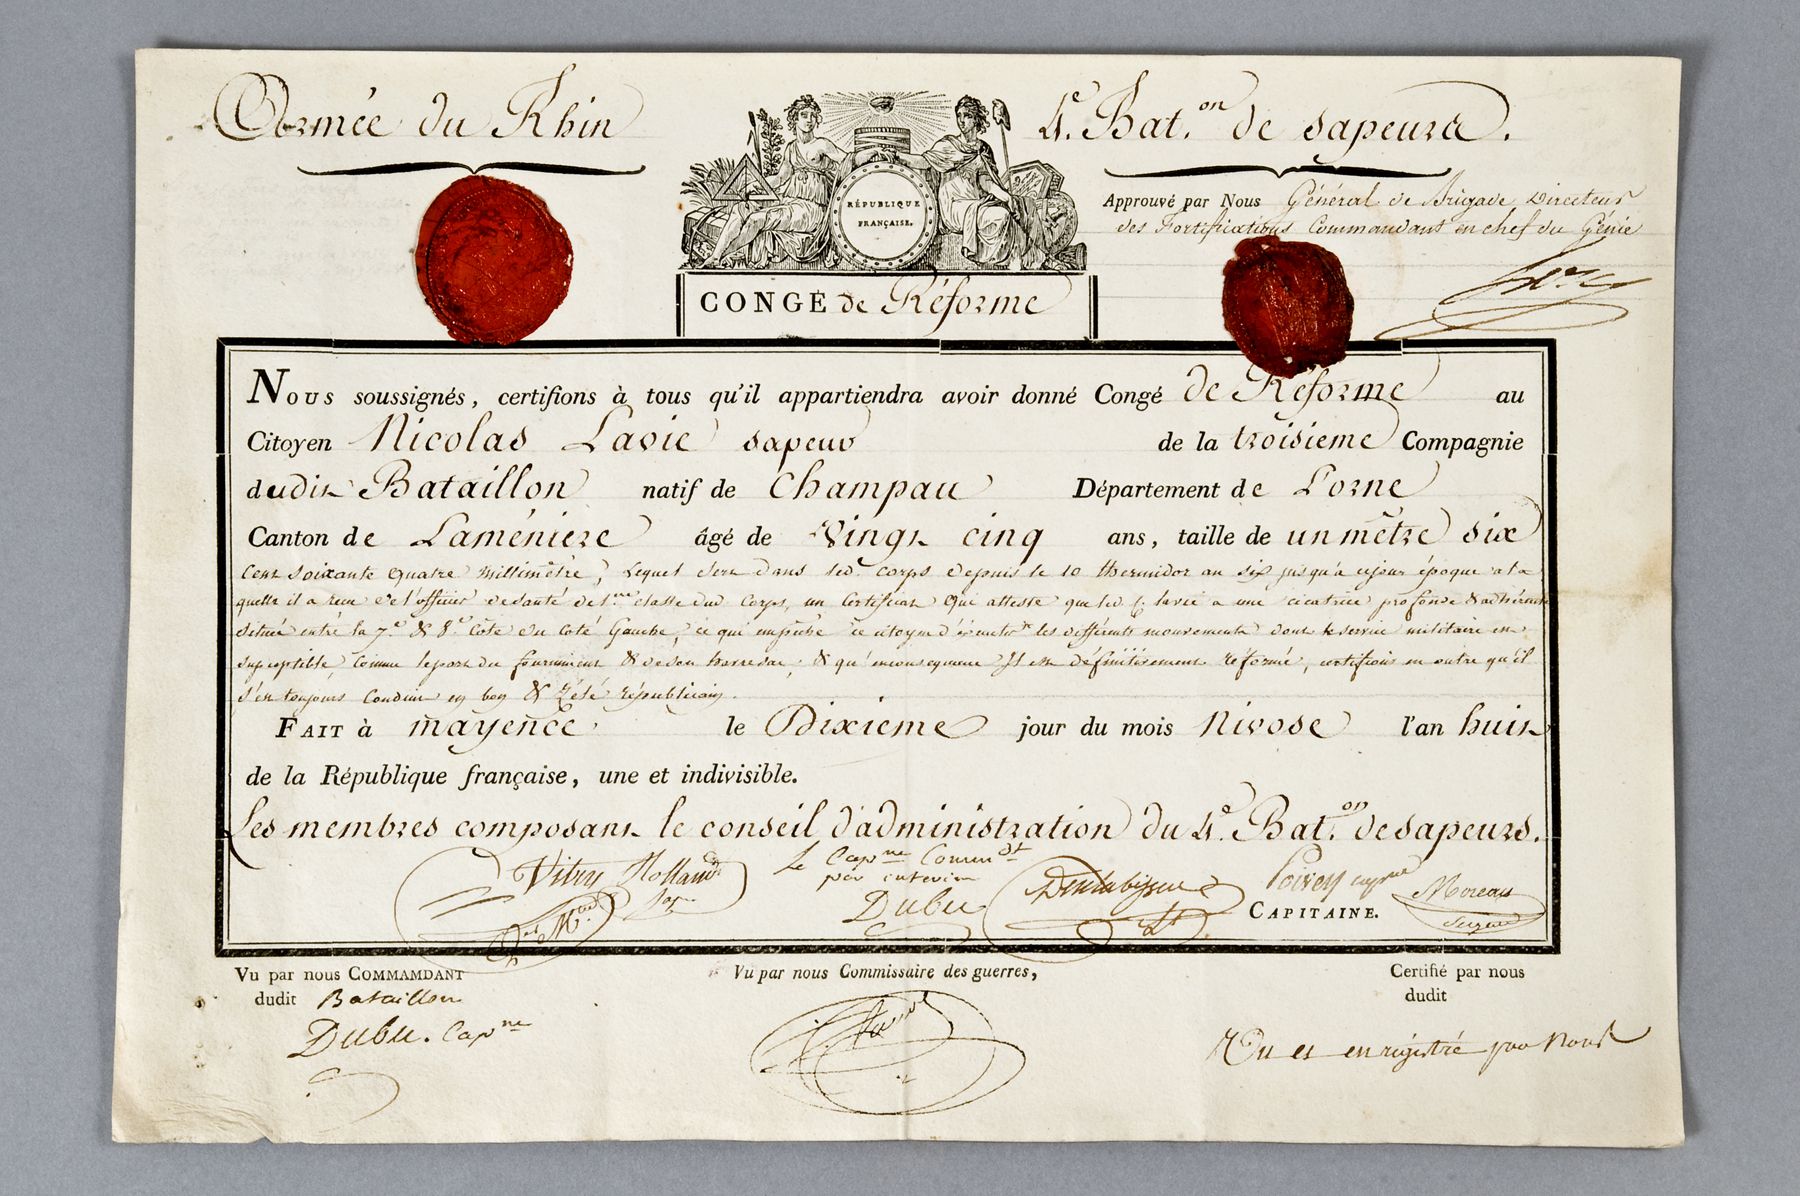 Armée du Rhin
4.e Bat.on de sapeurs.
RÉPUBLIQUE
FRANÇAISE.
Approuvé par Nous Général de Brigade Directeur
des Fortifications Commandant en chef du Génie
CONGÉ de Réforme
Nous soussignés, certifions à tous qu'il appartiendra avoir donné Congé de Réforme au
Citoyen Nicolas Lavie sapeur de la troisieme Compagnie
dudit Bataillon natif de Champau Département de L'orne
Canton de Laméniere âgé de Vingt cinq ans, taille de un mêtre six
cent soixante quatre millimêtre, Lequel sert dans led. corps depuis le 10 thermidor an six jusqu'à cejour époque a la
quelle il a recu de l'officier de santé de 1.ere classe dud. Corps, un Certificat qui atteste que led. C. lavie a une cicatrice profonde & adhérente
située entre la 7.e & 8.e côte du coté Gauche, ce qui empêche ce citoyen d'éxecuter les différents mouvements dont le service militaire est
susceptible, comme leport du fourniment & de son havresac, & qu'enconsequence Il est définitivement réformé, certifions en outre qu'il
s'est toujours Conduit en bon & Zélé républicain.
FAIT à mayence le Dixieme jour du mois Nivose l'an huit
de la République française, une et indivisible.
Les membres composant le conseil d'administration du 4.e Bat.on de sapeurs.
Vitry Holland Le Capne Commdt Poirey Moreau
par interim
Dubu
CAPITAINE.
Vu par nous COMMAMDANT Vu par nous Commissaire des guerres, Certifié par nous
dudit Bataillon dudit
Dubu. Capne
Vu et enregistré par Nous